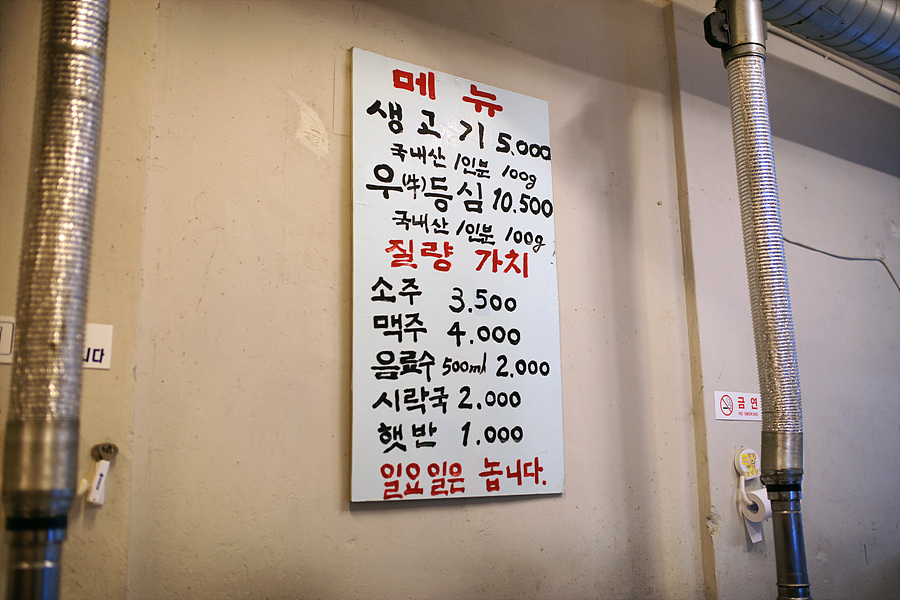 메뉴
생고기 5.000
국내산 1인분 100g
우(牛)등심 10.500
국내산 1인분 100g
질량 가치
소주 3.500
맥주 4.000
음료수 500ml 2.000
시락국 2.000
햇반 1.000
일요일은 놉니다.
니다
금연
NO SMOKING